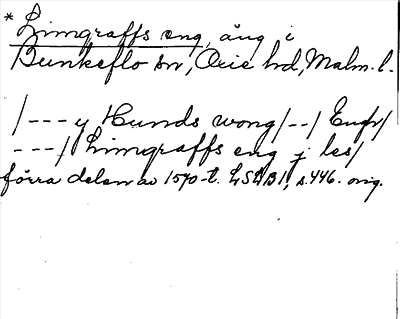 * Limgraffs eng, äng i
Bunkeflo sn, Oxie hd, Malm. l.
/--- y Hunds wong/--/ Engh/
---/ Limgraffs eng j les/
förra delen av 1570-t. LSDB I, s. 446. orig.